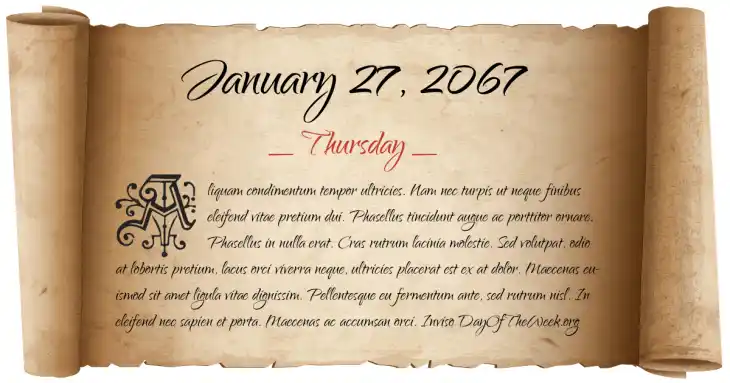 January 27, 2067
Thursday
Aliquam condimentum tempor ultricies. Nam nec turpis ut neque finibus
eleifend vitae pretium dui. Phasellus tincidunt augue ac porttitor ornare.
Phasellus in nulla erat. Cras rutrum lacinia molestie. Sed volutpat, odio
at lobortis pretium, lacus orci viverra neque, ultricies placerat est ex at dolor. Maecenas eu-
ismod sit amet ligula vitae dignissim. Pellentesque eu fermentum ante, sed rutrum nisl. In
eleifend nec sapien et porta. Maecenas ac accumsan orci. Inviso DayOfTheWeek.org